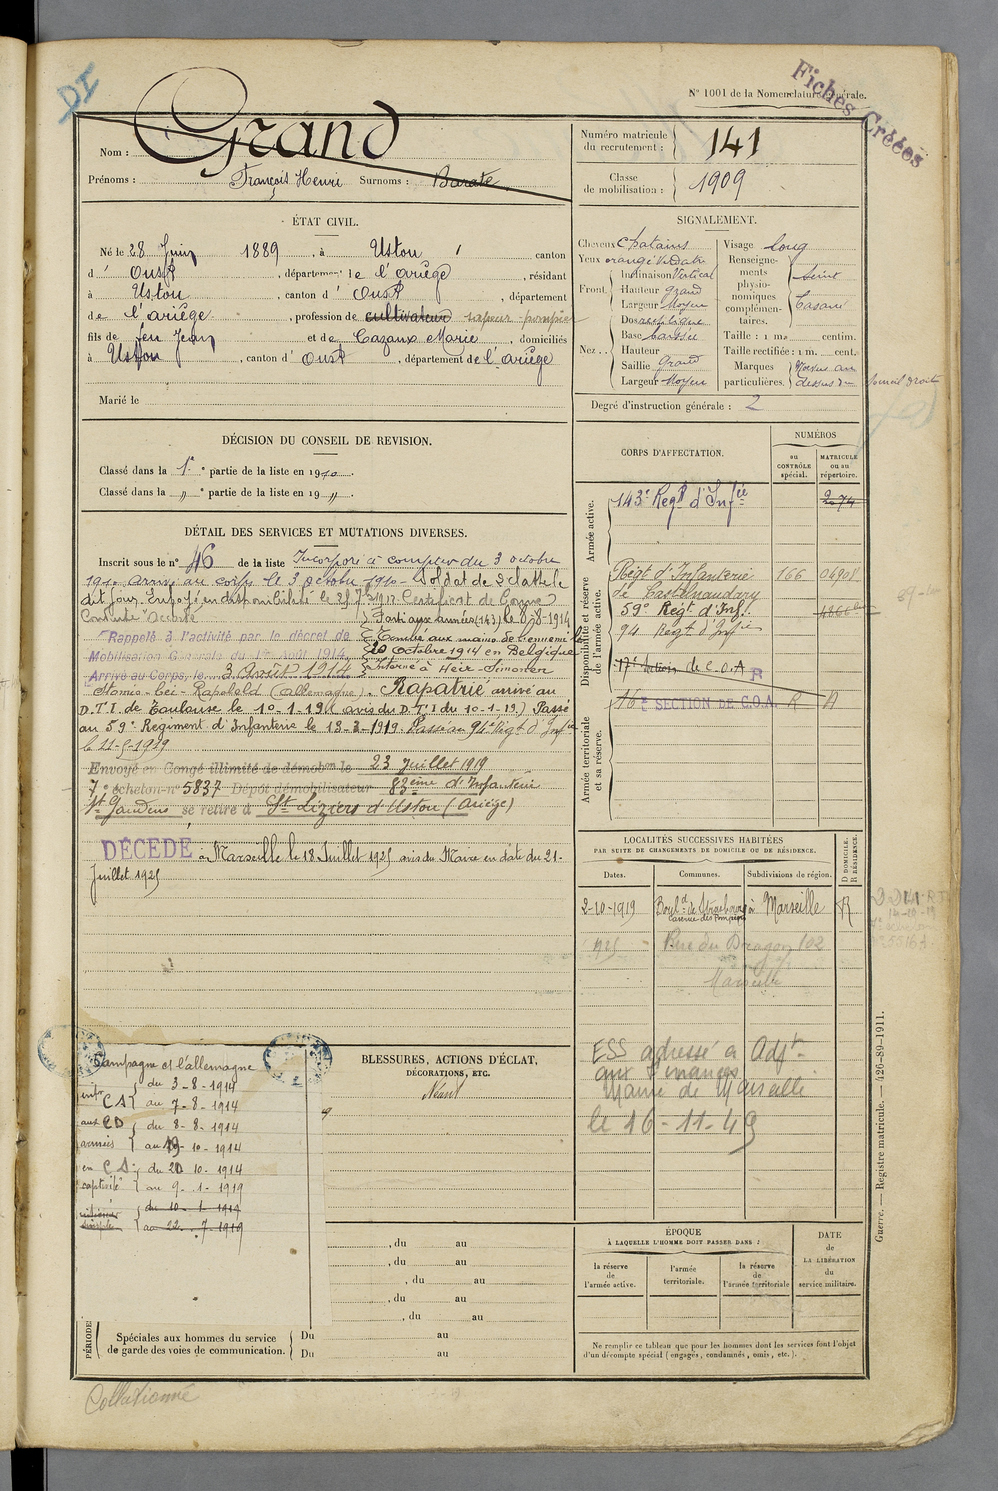 DI
Fiches Créées
N° 1001 de la Nomenclature générale.
Nom : Grand
Prénoms : François Henri Surnoms : Barate
Numéro matricule du recrutement : 141
Classe de mobilisation : 1909
ÉTAT CIVIL.
Né le 28 Juin 1889, à Ustou canton
d' Oust, département de l'ariège, résidant
à Ustou, canton d' Oust, département
de l'ariège, profession de cultivateur sapeur-pompier
fils de feu Jean et de Cazaux Marie, domiciliés
à Ustou, canton d' Oust, département de l'ariège
Marié le
SIGNALEMENT.
Cheveux chatains
Yeux orangé verdatre
Front. Inclinaison Vertical
Hauteur Grand
Largeur Moyen
Nez. Dos
Base
Hauteur
Saillie Grand
Largeur Moyen
Visage long
Renseignements physionomiques complémentaires. teint basané
Taille : 1 m. centim.
Taille rectifiée : 1 m. cent.
Marques particulières. au dessus du sourcil droit
Degré d'instruction générale : 2
DÉCISION DU CONSEIL DE REVISION.
Classé dans la 1e partie de la liste en 1910.
Classé dans la " e partie de la liste en 19 ".
DÉTAIL DES SERVICES ET MUTATIONS DIVERSES.
Inscrit sous le n° 46 de la liste Incorporé à compter du 3 octobre
1910 Arrivé au corps le 3 octobre 1910 - Soldat de 2e classe le
dit jour. Envoyé en disponibilité le 25 7bre 1912. Certificat de bonne
Conduite "Accordé"
Parti aux armées (143) le 8-8-1914
Rappelé à l'activité par le décret de
Tombé aux mains de l'ennemi le
Mobilisation Générale du 1er Août 1914.
20 octobre 1914 en Belgique
Arrivé au Corps, le 3 Août 1914
Interné à
(allemagne). Rapatrié arrivé au
D.T.I de Toulouse le 10-1-19 (avis du D.T.I du 10-1-19) Passé
au 59e Regiment d'Infanterie le 18-3-1919. Passé au 94e Régt d'Inf ie
le 11-5-1919
Envoyé en Congé illimité de démobon le 23 Juillet 1919
7e échelon - n° 5837 Dépôt démobilisateur 83eme d'Infanterie
St Gaudens se retire à St Liziers d'Ustou (Ariège)
DÉCÉDÉ à Marseille le 18 Juillet 1925 avis du Maire en date du 21-
Juillet 1925
CORPS D'AFFECTATION.
NUMÉROS
au CONTRÔLE spécial.
MATRICULE ou au répertoire.
Armée active.
143e Régt d'Infie 2074
Disponibilité et réserve de l'armée active.
Régt d'Infanterie 166
de Castelnaudary
59e Régt d'Inf.
94 Régt d'Infie
17e Section de C.O.A R
16e SECTION DE C.O.A. R A
Armée territoriale et sa réserve.
LOCALITÉS SUCCESSIVES HABITÉES
PAR SUITE DE CHANGEMENTS DE DOMICILE OU DE RÉSIDENCE.
Dates.
Communes.
Subdivisions de région.
D DOMICILE. R RÉSIDENCE.
2-10-1919 Bould de Strasbourg à Marseille R
Caserne des Pompiers
1925 - Rue du Dragon 102
Marseille
ESS adressé à Adjt
aux Finances
Mairie de Marseille
le 16-11-49
Campagne ct l'allemagne
intr CS du 3-8-1914
au 7-8-1914
aux CD du 8-8-1914
armées au 19-10-1914
en CS du 20 10-1914
captivité au 9-1-1919
intérieur du 10-1-1919
simple au 22-7-1919
BLESSURES, ACTIONS D'ÉCLAT,
DÉCORATIONS, ETC.
Néant
, du au
, du au
, du au
, du au
, du au
PÉRIODES
Spéciales aux hommes du service
de garde des voies de communication.
Du au
Du au
ÉPOQUE
À LAQUELLE L'HOMME DOIT PASSER DANS :
la réserve de l'armée active.
l'armée territoriale.
la réserve de l'armée territoriale
DATE de LA LIBÉRATION du service militaire.
Ne remplir ce tableau que pour les hommes dont les services font l'objet
d'un décompte spécial (engagés, condamnés, omis, etc.).
Guerre. — Registre matricule. — 426-89-1911.
Collationné